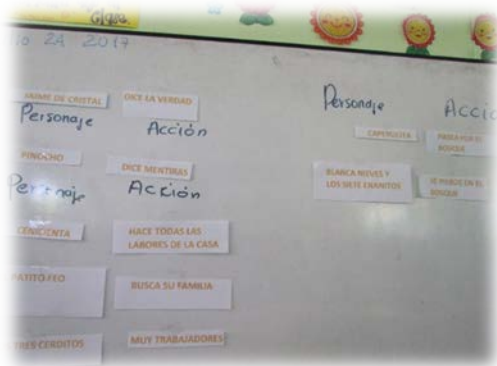 24 2017
JAIME DE CRISTAL DICE LA VERDAD
Personaje Acción
PINOCHO DICE MENTIRAS
Personaje Acción
CENICIENTA HACE TODAS LAS
LABORES DE LA CASA
PATITO FEO BUSCA SU FAMILIA
TRES CERDITOS MUY TRABAJADORES
Personaje Acció
CAPERUCITA PASEA POR EL
BOSQUE
BLANCA NIEVES Y
LOS SIETE ENANITOS
SE PIERDE EN EL
BOSQUE